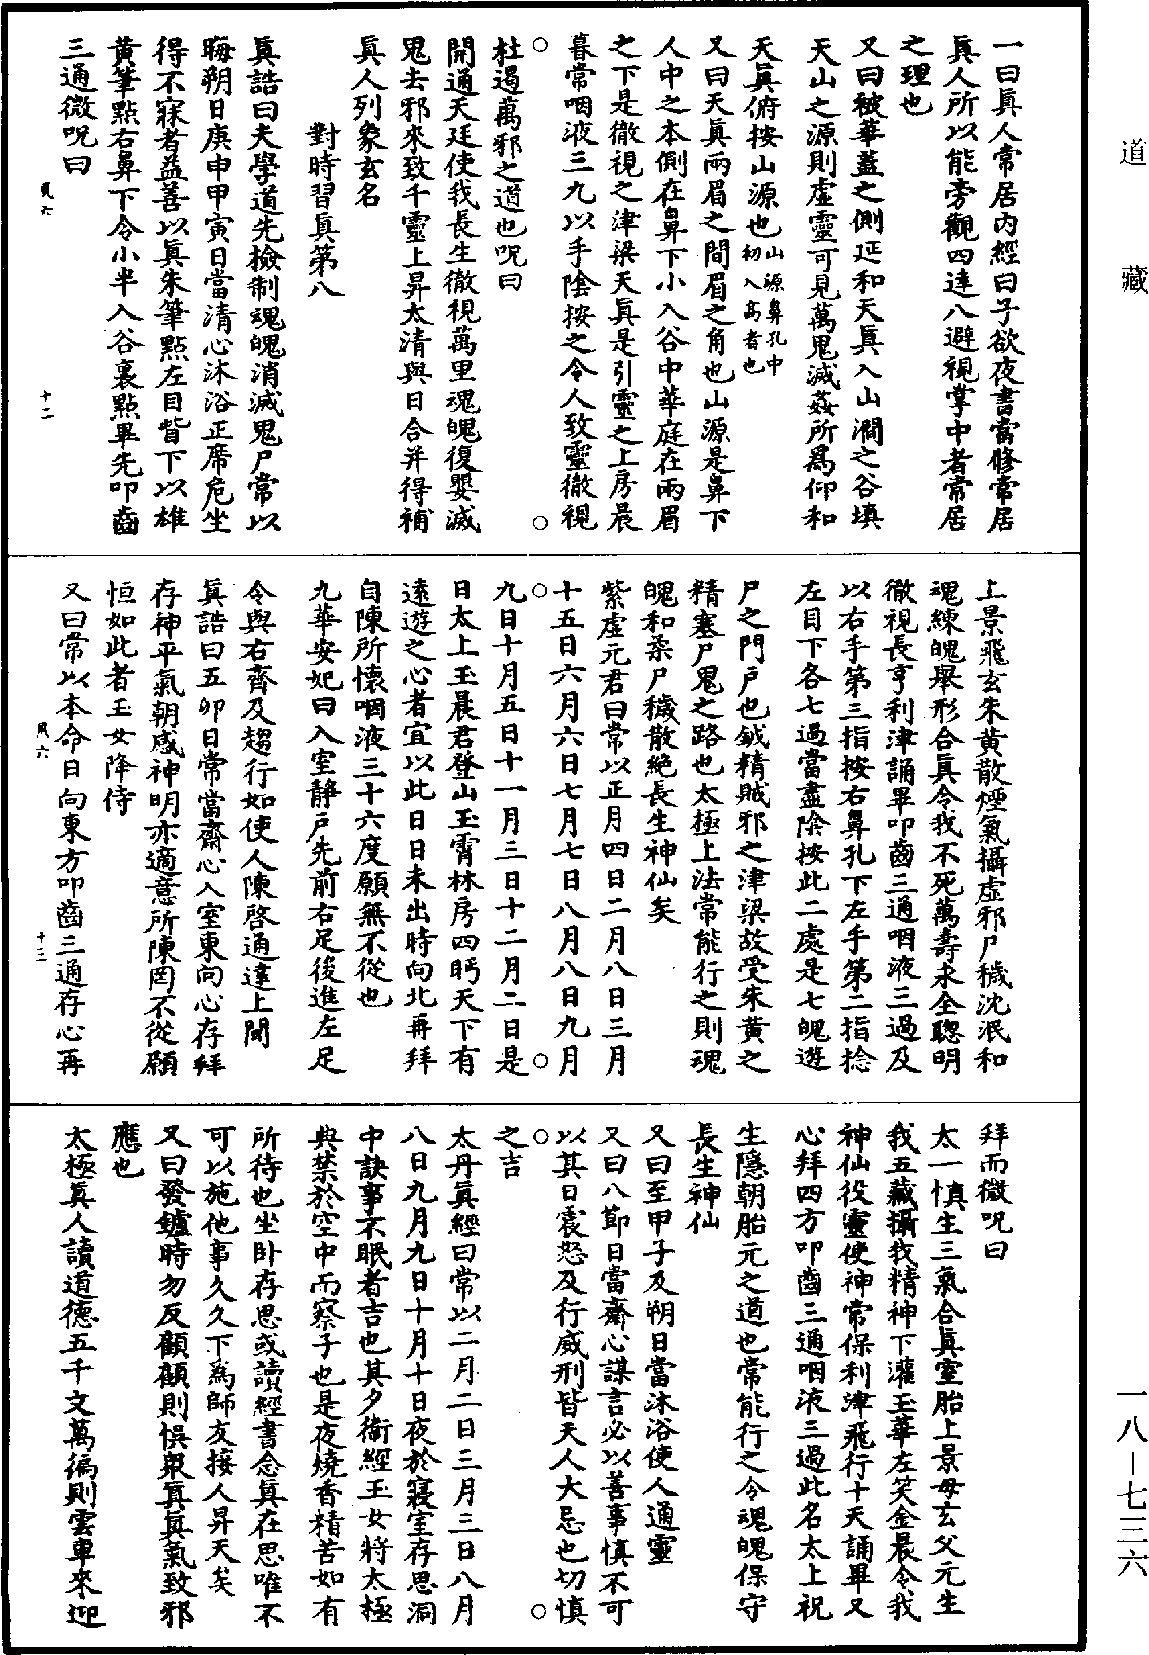 道藏
一曰眞人常居內經曰子欲夜書當修常居
眞人所以能旁觀四達八避視掌中者常居
之理也
又曰被華蓋之側延和天眞入山澗之谷填
天山之源則虛靈可見萬鬼滅姦所爲仰和
天眞俯按山源也山源鼻孔中初入高者也
又曰天眞兩眉之間眉之角也山源是鼻下
人中之本側在鼻下小入谷中華庭在兩眉
之下是徹視之津梁天眞是引靈之上房晨
暮常咽液三九以手陰按之令人致靈徹視
杜遏萬邪之道也呪曰
開通天廷使我長生徹視萬里魂魄復嬰滅
鬼去邪來致千靈上昇太清與日合并得補
眞人列象玄名
對時習眞第八
眞誥曰夫學道先撿制魂魄消滅鬼尸常以
晦朔日庚申甲寅日當清心沐浴正席危坐
得不寐者益善以眞朱筆點左目眥下以雄
黃筆點右鼻下令小半入谷裏點畢先叩齒
三通微呪曰
夙六
十二
上景飛玄朱黃散煙氣攝虛邪尸穢沈泯和
魂練魄舉形合眞令我不死萬壽永全聰明
徹視長亨利津誦畢叩齒三通咽液三過及
以右手第三指按右鼻孔下左手第二指捻
左目下各七過當盡陰按此二處是七魄遊
尸之門戶也鉞精賊邪之津梁故受朱黃之
精塞尸鬼之路也太極上法常能行之則魂
魄和柔尸穢散絕長生神仙矣
紫虛元君曰常以正月四日二月八日三月
十五日六月六日七月七日八月八日九月
九日十月五日十一月三日十二月二日是
日太上玉晨君登山玉霄林房四眄天下有
遠遊之心者宜以此日日未出時向北再拜
自陳所懷咽液三十六度願無不從也
九華安妃曰入室靜戶先前右足後進左足
令與右齊及趨行如使人陳啓通達上聞
眞誥曰五卯日常當齋心入室東向心存拜
存神平氣朝感神明亦適意所陳罔不從願
恒如此者玉女降侍
又曰常以本命日向東方叩齒三通存心再
夙六
十三
拜而微呪曰
太一慎生三氣合眞室胎上景母玄父元生
我五藏攝我精神下灌玉華左笑金晨令我
神仙役靈使神常保利津飛行十天誦畢又
心拜四方叩齒三通咽液三過此名太上祝
生隱朝胎元之道也常能行之令魂魄保守
長生神仙
又曰至甲子及朔日當沐浴使人通靈
又曰八節日當齋心謀言必以善事慎不可
以其日震怒及行威刑皆天人大忌也切慎
之吉
太丹眞經曰常以二月二日三月三日八月
八日九月九日十月十日夜於寢室存思洞
中訣事不眠者吉也其夕衞經玉女將太極
典禁於空中而察子也是夜燒香精苦如有
所待也坐臥存思或讀經書念眞在思唯不
可以施他事久久下爲師友接人昇天矣
又曰發鑪時勿反顧顧則愳衆眞眞氣致邪
應也
太極眞人讀道德五千文萬徧則雲車來迎
一八—七三六